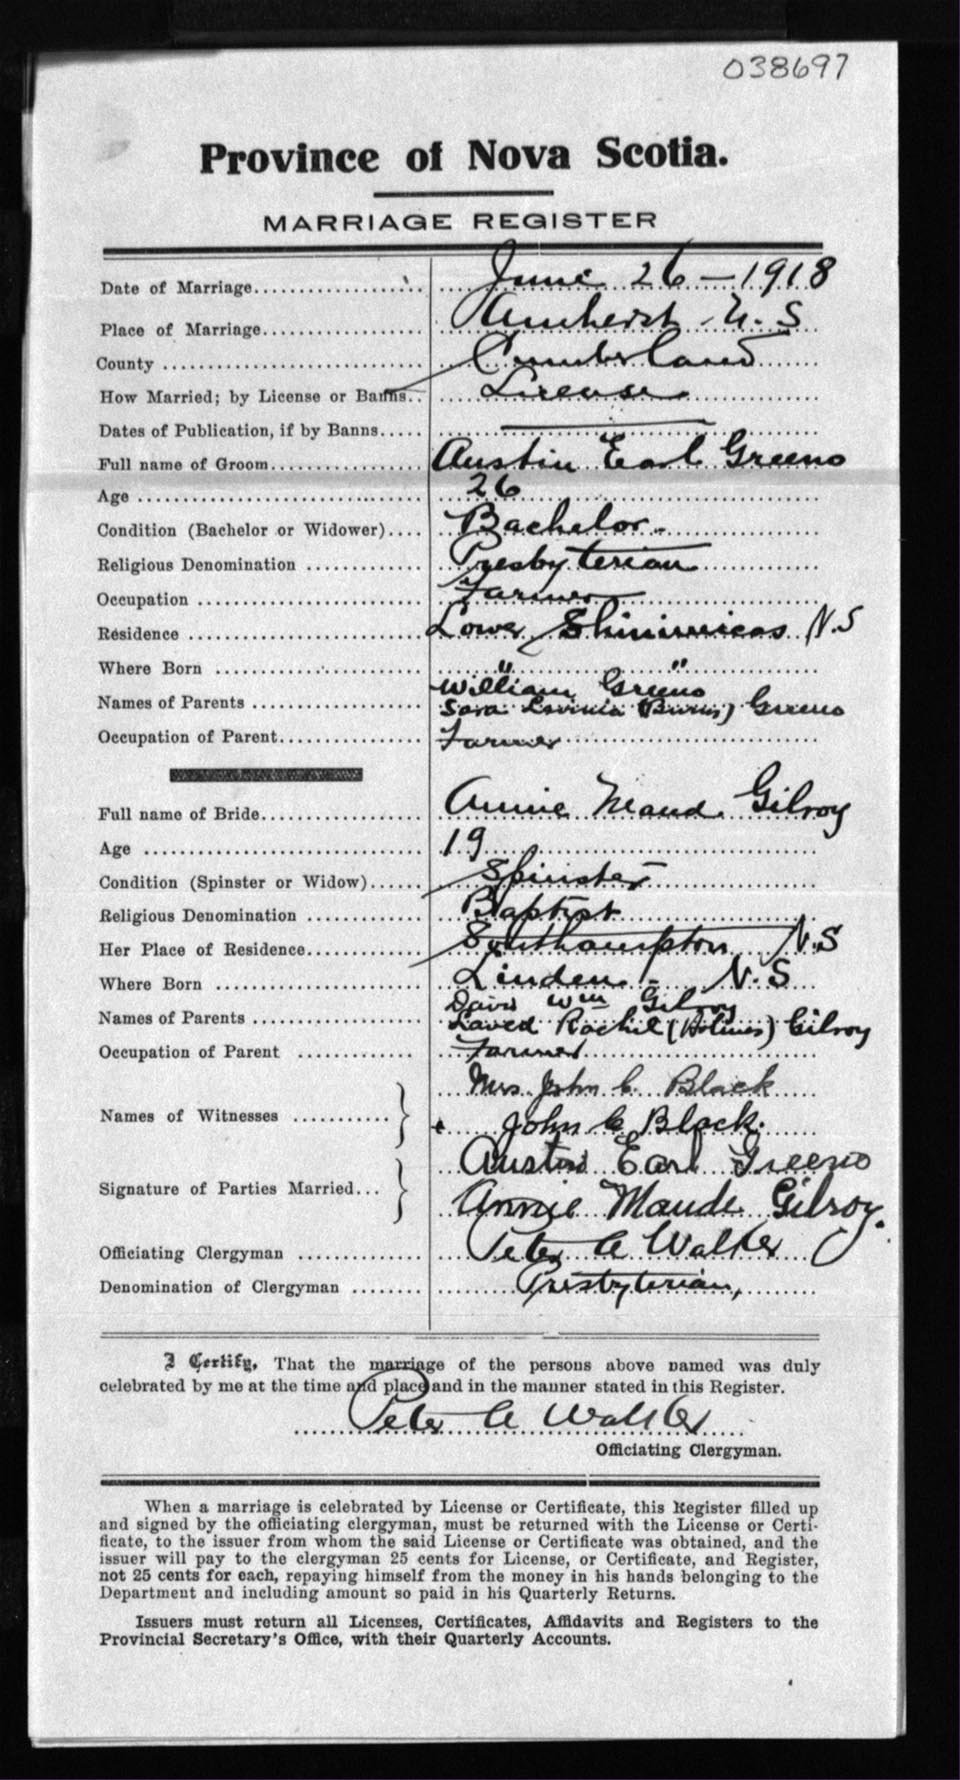 038697
Province of Nova Scotia.
MARRIAGE REGISTER
Date of Marriage.................. June 26 – 1918
Place of Marriage.................. Amherst N. S
County .................. Cumberland
How Married; by License or Banns.. License
Dates of Publication, if by Banns..... ———
Full name of Groom.................. Austin Earl Greeno
Age .................. 26
Condition (Bachelor or Widower).... Bachelor
Religious Denomination ............ Presbyterian
Occupation .................. Farmer
Residence .................. Lower Shinimicas N.S
Where Born .................. " "
Names of Parents .................. William Greeno
Sara Lavinia ( ) Greeno
Occupation of Parent.................. Farmer
Full name of Bride.................. Annie Maud Gilroy
Age .................. 19
Condition (Spinster or Widow)...... Spinster
Religious Denomination ............ Baptist
Her Place of Residence............ Southampton N.S
Where Born .................. Linden N.S
Names of Parents .................. David Wm Gilroy
Rachel (Holmes) Gilroy
Occupation of Parent ............ Farmer
Names of Witnesses ........... } Mrs John C. Black
John C Black.
Signature of Parties Married... } Austin Earl Greeno
Annie Maude Gilroy.
Officiating Clergyman ............ Peter A Walker
Denomination of Clergyman ........ Presbyterian,
I Certify, That the marriage of the persons above named was duly
celebrated by me at the time and place and in the manner stated in this Register.
Peter A Walker
Officiating Clergyman.
When a marriage is celebrated by License or Certificate, this Register filled up
and signed by the officiating clergyman, must be returned with the License or Certi-
ficate, to the issuer from whom the said License or Certificate was obtained, and the
issuer will pay to the clergyman 25 cents for License, or Certificate, and Register,
not 25 cents for each, repaying himself from the money in his hands belonging to the
Department and including amount so paid in his Quarterly Returns.
Issuers must return all Licenses, Certificates, Affidavits and Registers to the
Provincial Secretary's Office, with their Quarterly Accounts.